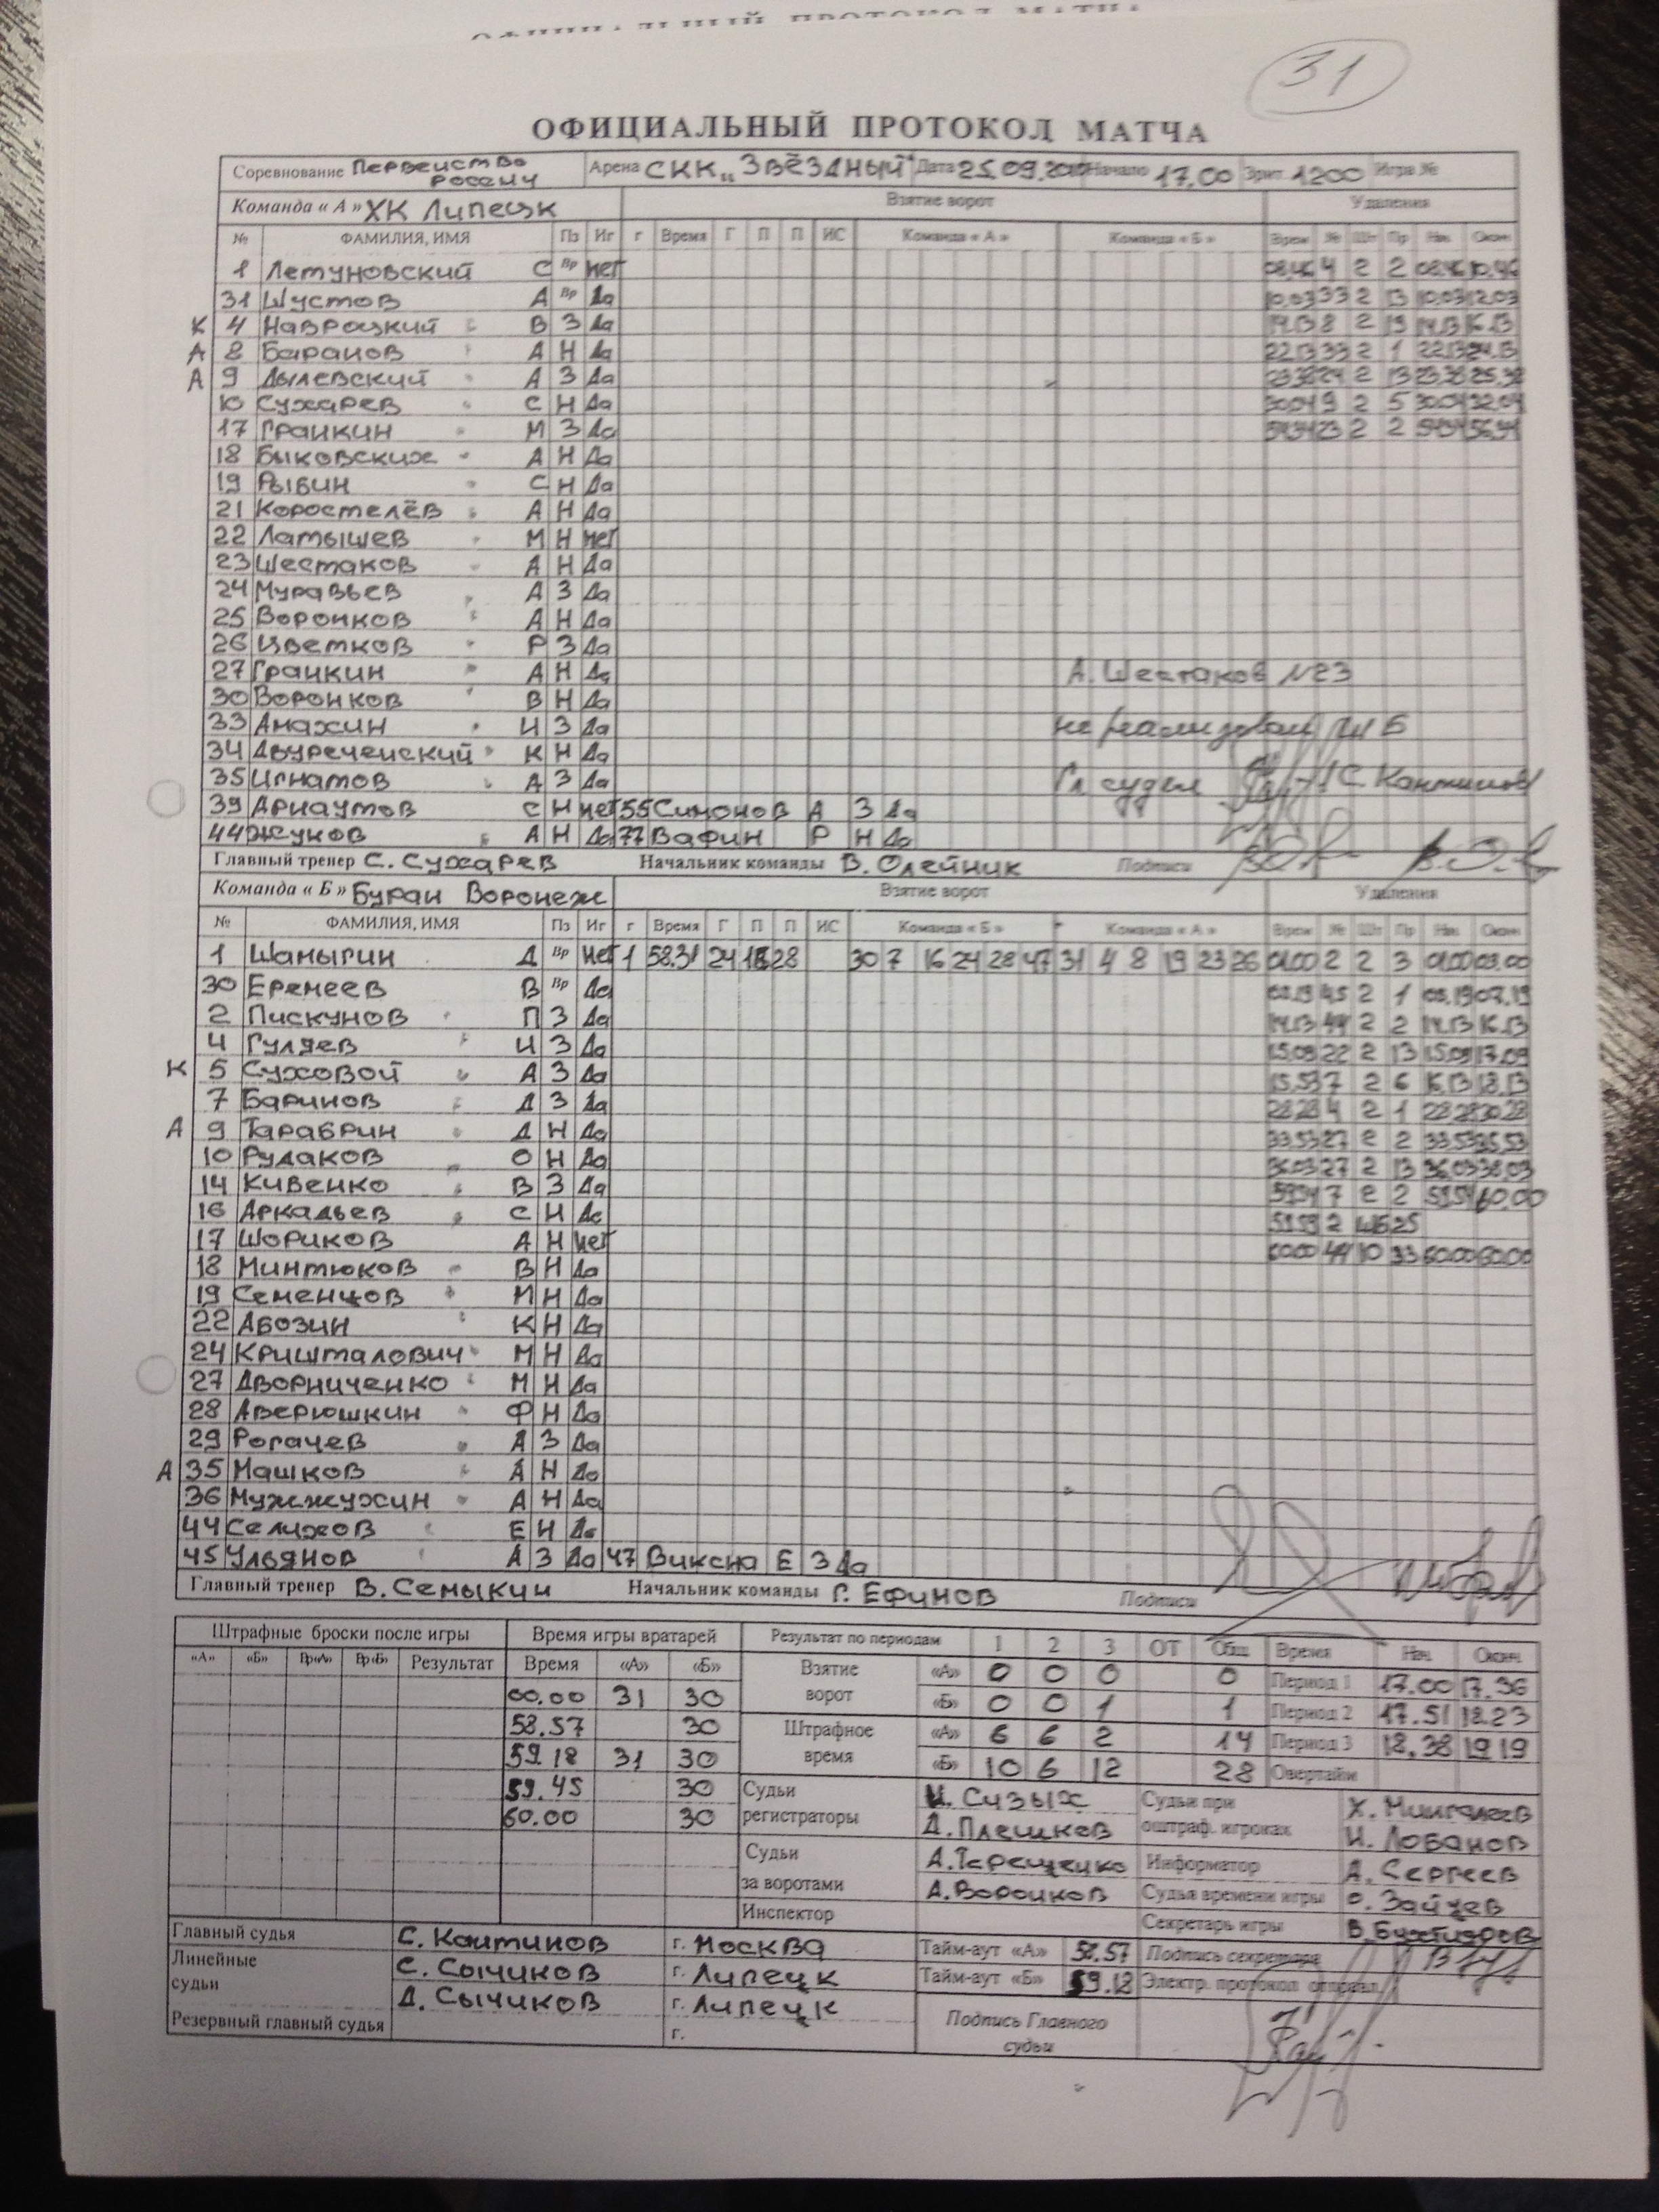 31
ОФИЦИАЛЬНЫЙ ПРОТОКОЛ МАТЧА
Соревнование Первенство России Арена СКК „Звёздный" Дата 25.09. Начало 17.00 Зрит. 1200 Игра №
Команда « А » ХК Липецк Взятие ворот Удаления
№ ФАМИЛИЯ, ИМЯ Пз Иг г Время Г П П ИС Команда « А » Команда « Б » Врем № Шт Пр Нач. Оконч.
1 Летуновский С Вр нет 08.46 4 2 2 08.46 10.46
31 Шустов А Вр Да 10.03 33 2 13 10.03 12.03
К 4 Навроцкий В З Да 14.13 8 2 19 14.13 16.13
А 8 Баранов А Н Да 22.13 33 2 1 22.13 24.13
А 9 Дылевский А З Да 23.38 24 2 13 23.38 25.38
10 Сухарев С Н Да 30.04 9 2 5 30.04 32.04
17 Гранкин М З Да 54.34 23 2 2
18 Быковских А Н Да
19 Рыбин С Н Да
21 Коростелёв А Н Да
22 Латышев М Н нет
23 Шестаков А Н Да
24 Муравьев А З Да
25 Воронков А Н Да
26 Цветков Р З Да
27 Гранкин А Н Да А. Шестаков №23
30 Воронков В Н Да
33 Анахин И З Да не реализовал ШБ
34 Двуреченский К Н Да
35 Игнатов А З Да Гл судья С.
39 Арнаутов С Н нет 55 Симонов А З Да
44 Жуков А Н Да 77 Вафин Р Н Да
Главный тренер С. Сухарев Начальник команды В. Олейник Подписи
Команда « Б » Буран Воронеж Взятие ворот Удаления
№ ФАМИЛИЯ, ИМЯ Пз Иг г Время Г П П ИС Команда « Б » Команда « А » Врем № Шт Пр Нач. Оконч.
1 Шамыгин Д Вр нет 1 58.31 24 16 28 30 7 16 24 28 47 31 4 8 19 23 26 01.00 2 2 3 01.00 03.00
30 Еремеев В Вр Да 45 2 1 07.19
2 Пискунов П З Да 14.13 44 2 2 14.13 16.13
4 Гуляев И З Да 15.09 22 2 13 15.09 17.09
К 5 Суховой А З Да 15.53 7 2 6 16.13 18.13
7 Баринов Д З Да 28.28 4 2 1 28.28 30.28
А 9 Тарабрин Д Н Да 33.53 27 2 2 33.53 35.53
10 Рудаков О Н Да 36.03 27 2 13 36.03 38.03
14 Кивенко В З Да 59.54 7 2 2 59.54 60.00
16 Аркадьев С Н Да 59.59 2 ШБ 25
17 Шориков А Н нет 60.00 44 10 33 60.00 60.00
18 Минтюков В Н Да
19 Семенцов М Н Да
22 Абозин К Н Да
24 Кришталович М Н Да
27 Дворниченко М Н Да
28 Аверюшкин Ф Н Да
29 Рогачев А З Да
А 35 Машков А Н Да
36 Мужжухин А Н Да
44 Селихов Е Н Да
45 Ульянов А З Да 47 Виксна Е З Да
Главный тренер В. Семыкин Начальник команды Г. Ефимов Подписи
Штрафные броски после игры Время игры вратарей Результат по периодам 1 2 3 ОТ Общ Время Нач. Оконч.
«А» «Б» Вр«А» Вр«Б» Результат Время «А» «Б»
Взятие ворот «А» 0 0 0 0 Период 1 17.00 17.36
00.00 31 30 «Б» 0 0 1 1 Период 2 17.51 18.23
58.57 30 Штрафное время «А» 6 6 2 14 Период 3 18.38 19.19
59.18 31 30 «Б» 10 6 12 28 Овертайм
59.45 30 Судьи регистраторы И. Сизых Судьи при оштраф. игроках Х. Мингалеев
60.00 30 Д. Плешкев И. Лобанов
Судьи за воротами А. Терещенко Информатор А. Сергеев
А. Воронков Судья времени игры О. Зайцев
Инспектор Секретарь игры В.
Главный судья С. Кантинов г. Москва Тайм-аут «А» 58.57 Подпись секретаря
Линейные судьи С. Сычиков г. Липецк Тайм-аут «Б» 59.18 Электр. протокол отправл.
Д. Сычиков г. Липецк Подпись Главного судьи
Резервный главный судья г.